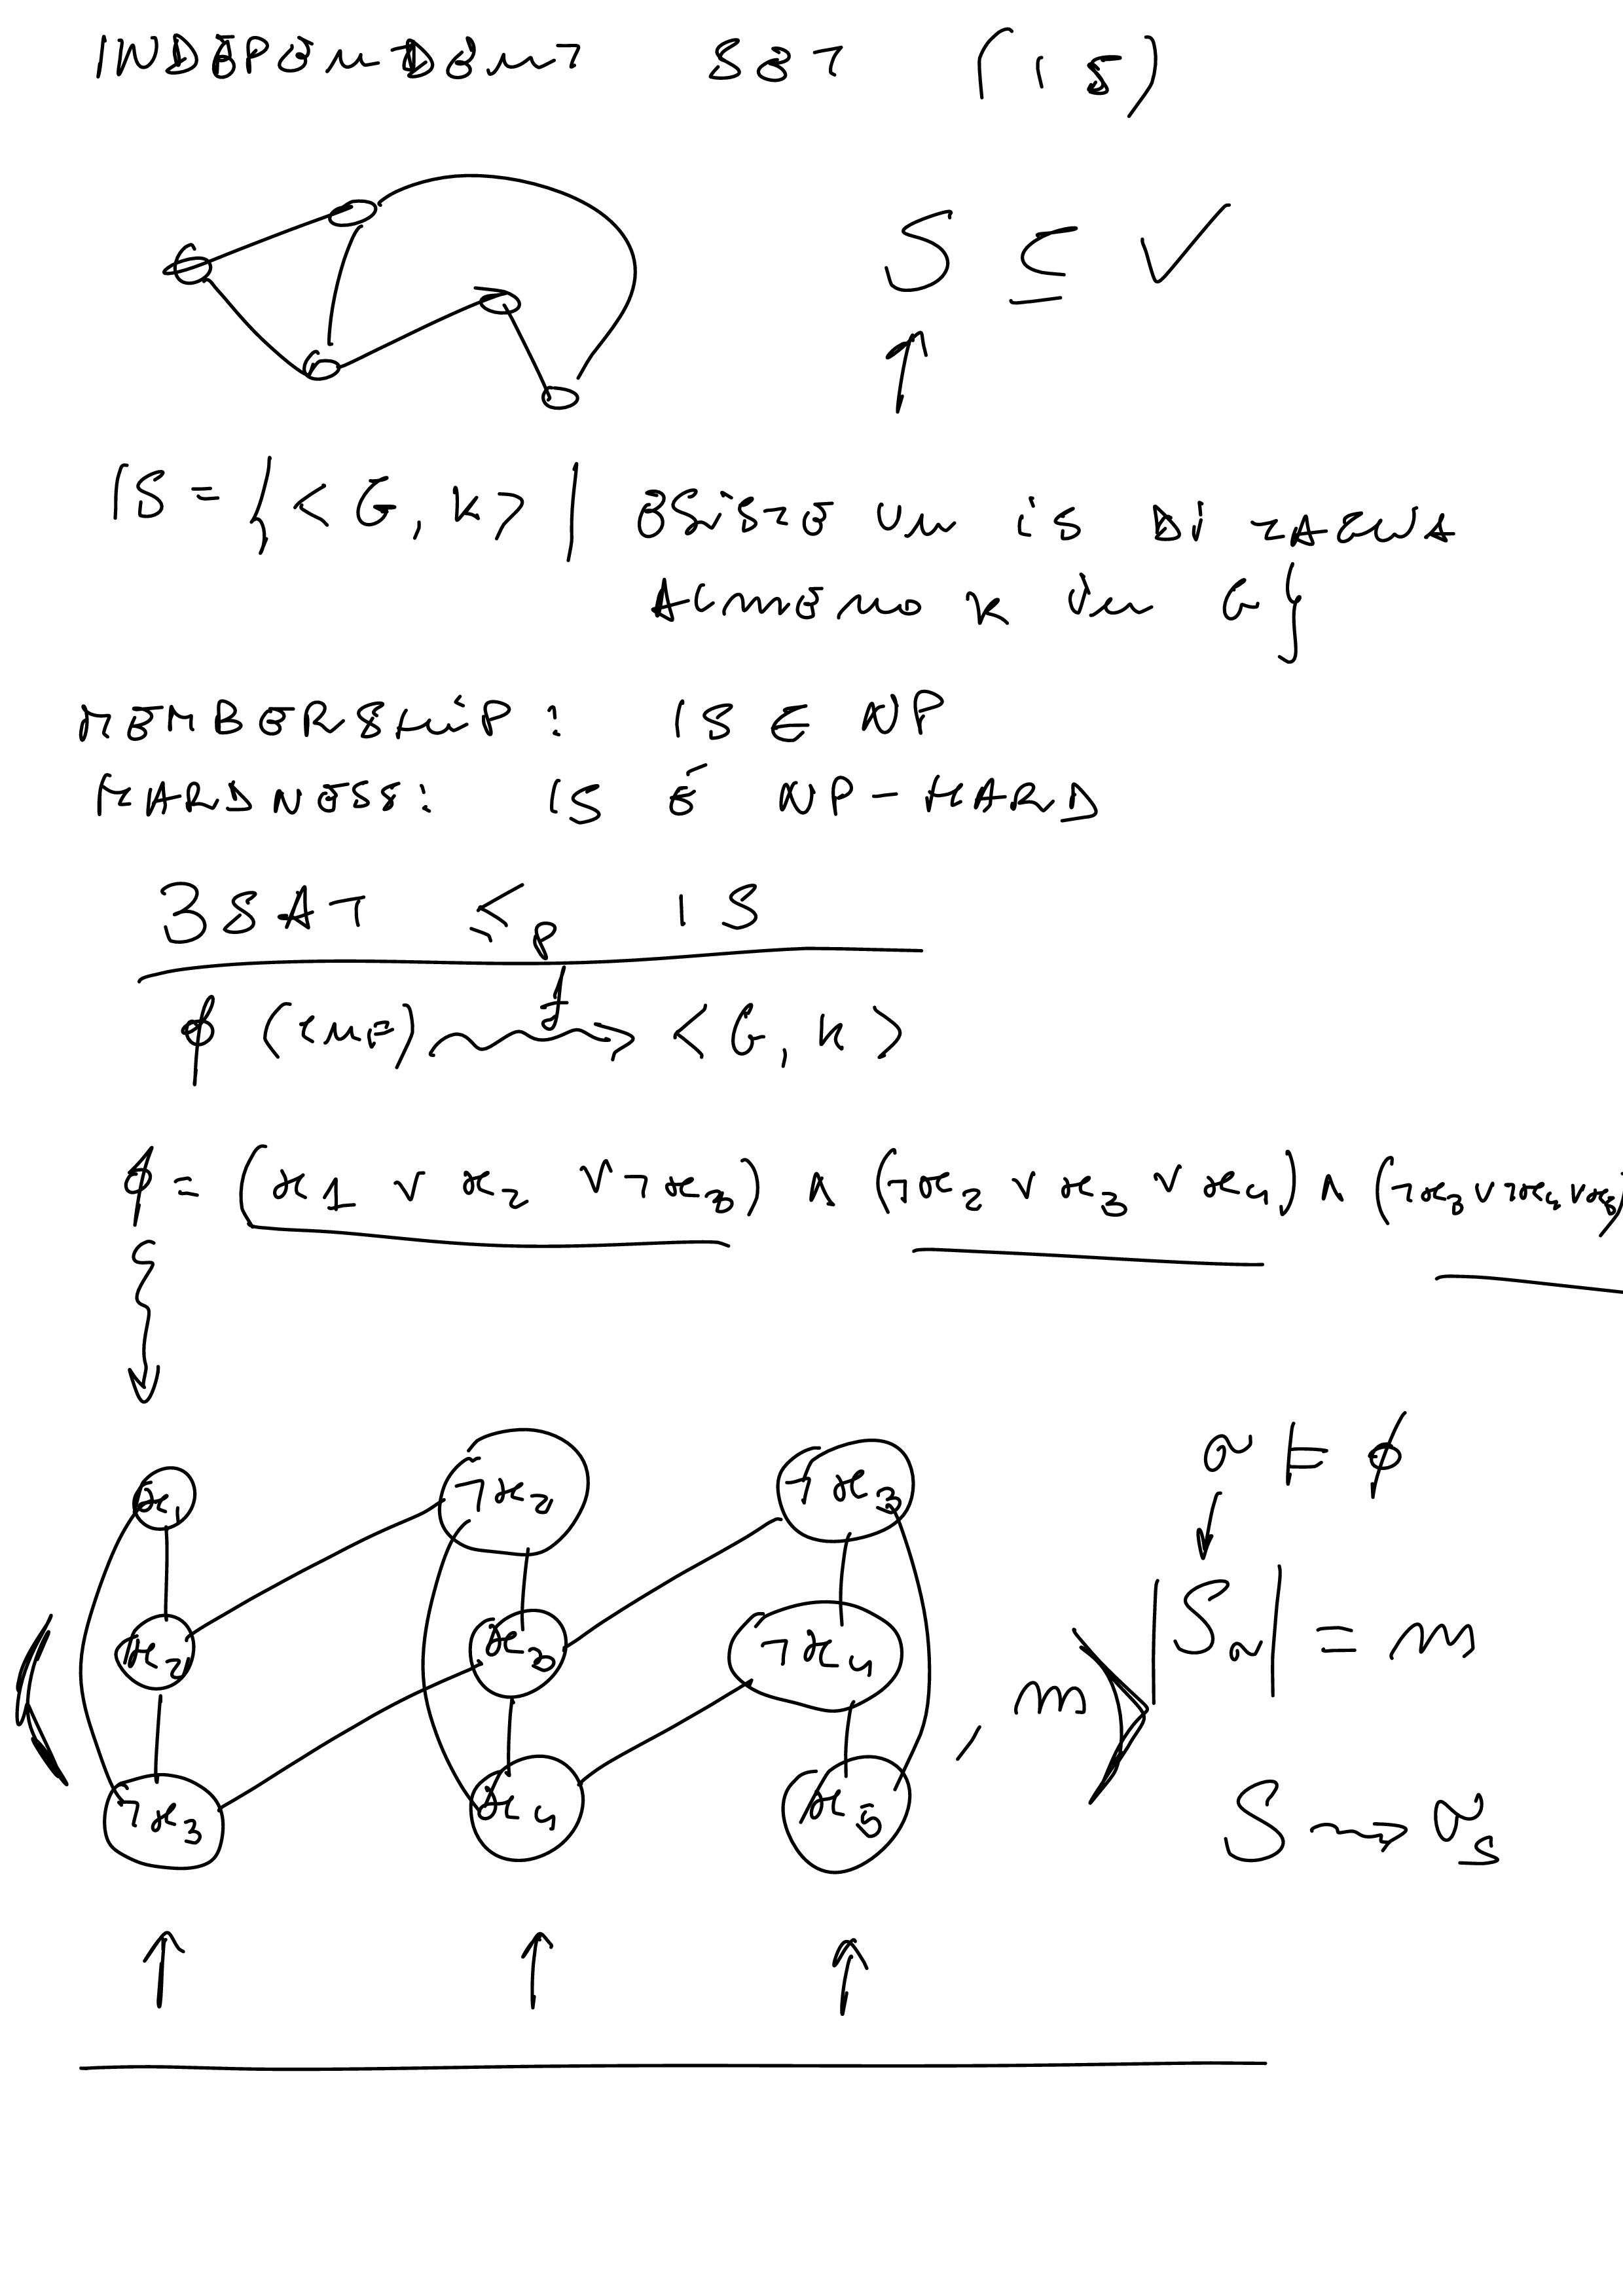 INDEPENDENT SET (IS)
S ⊆ V
IS = { <G, K> | ESISTE UN IS DI TAGLIA
ALMENO K IN G }
MEMBERSHIP: IS ∈ NP
HARDNESS: IS È NP-HARD
3SAT ≤p IS
ϕ (CNF) f <G, K>
ϕ = (x1 ∨ x2 ∨ ¬x3) ∧ (¬x2 ∨ x3 ∨ x4) ∧ (¬x3 ∨ ¬x4 ∨ x5)
σ ⊨ ϕ
x1 ¬x2 ¬x3
|Sσ| = m
x2 x3 ¬x4 , m
¬x3 x4 x5
S → σS